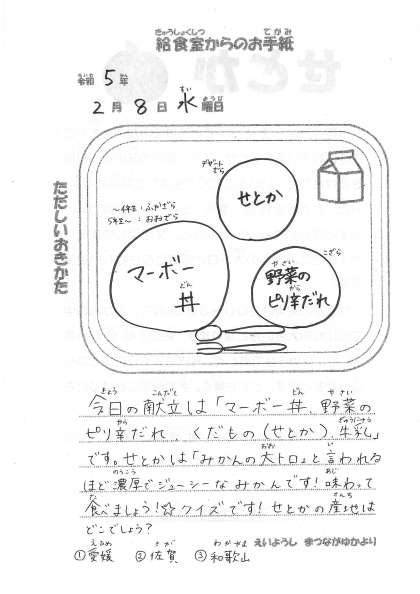 給食室からのお手紙
令和 5年
2月 8日 水曜日
ただしいおきかた
デザートざら
せとか
〜4年生：ふかざら
5年生〜：おおざら
マーボー丼
こざら
野菜の
ピリ辛だれ
今日の献立は「マーボー丼、野菜の
ピリ辛だれ、くだもの(せとか)、牛乳」
です。せとかは「みかんの大トロ」と言われる
ほど濃厚でジューシーなみかんです！味わって
食べましょう！☆クイズです！せとかの産地は
どこでしょう？
①愛媛 ②佐賀 ③和歌山
えいようし まつながゆかより